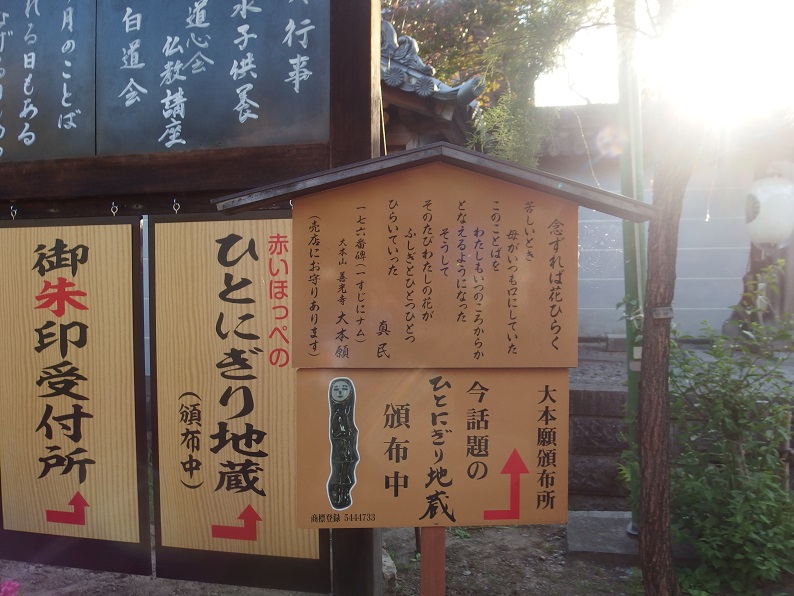 行事
水子供養
道心会
仏教講座
白道会
月のことば
れる日もある
念ずれば花ひらく
苦しいとき
母がいつも口にしていた
このことばを
わたしもいつのころからか
となえるようになった
そうして
そのたびわたしの花が
ふしぎとひとつひとつ
ひらいていった
真民
一七六番碑(一すじにナム)
大本山 善光寺 大本願
(売店にお守りあります)
大本願頒布所
今話題の
ひとにぎり地蔵
頒布中
商標登録 5444733
赤いほっぺの
ひとにぎり地蔵
(頒布中)
御朱印受付所